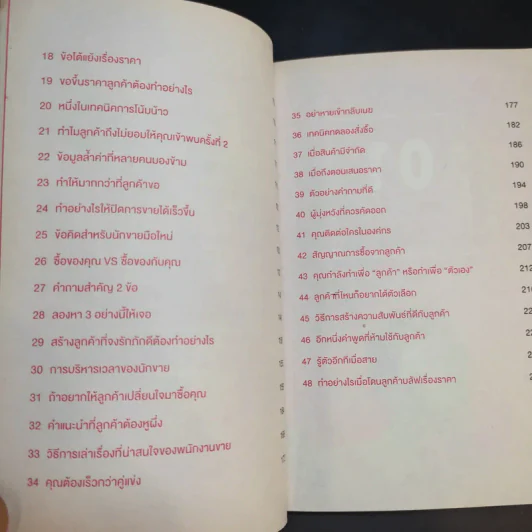 18 ข้อโต้แย้งเรื่องราคา
19 ขอขึ้นราคาลูกค้าต้องทำอย่างไร
20 หนึ่งในเทคนิคการโน้มน้าว
21 ทำไมลูกค้าถึงไม่ยอมให้คุณเข้าพบครั้งที่ 2
22 ข้อมูลล้ำค่าที่หลายคนมองข้าม
23 ทำให้มากกว่าที่ลูกค้าขอ
24 ทำอย่างไรให้ปิดการขายได้เร็วขึ้น
25 ข้อคิดสำหรับนักขายมือใหม่
26 ซื้อของคุณ VS ซื้อของกับคุณ
27 คำถามสำคัญ 2 ข้อ
28 ลองหา 3 อย่างนี้ให้เจอ
29 สร้างลูกค้าที่จงรักภักดีต้องทำอย่างไร
30 การบริหารเวลาของนักขาย
31 ถ้าอยากให้ลูกค้าเปลี่ยนใจมาซื้อคุณ
32 คำแนะนำที่ลูกค้าต้องหูผึ่ง
33 วิธีการเล่าเรื่องที่น่าสนใจของพนักงานขาย
34 คุณต้องเร็วกว่าคู่แข่ง
35 อย่าหายเข้ากลีบเมฆ 177
36 เทคนิคทดลองสั่งซื้อ 182
37 เมื่อสินค้ามีจำกัด 186
38 เมื่อถึงตอนเสนอราคา 190
39 ตัวอย่างคำถามที่ดี 194
40 ผู้มุ่งหวังที่ควรคัดออก 198
41 คุณติดต่อใครในองค์กร 203
42 สัญญาณการซื้อจากลูกค้า 207
43 คุณกำลังทำเพื่อ "ลูกค้า" หรือทำเพื่อ "ตัวเอง" 212
44 ลูกค้าที่ไหนก็อยากได้ตัวเลือก
45 วิธีการสร้างความสัมพันธ์ที่ดีกับลูกค้า
46 อีกหนึ่งคำพูดที่ห้ามใช้กับลูกค้า
47 รู้ตัวอีกทีเมื่อสาย
48 ทำอย่างไรเมื่อโดนลูกค้าบลัฟเรื่องราคา